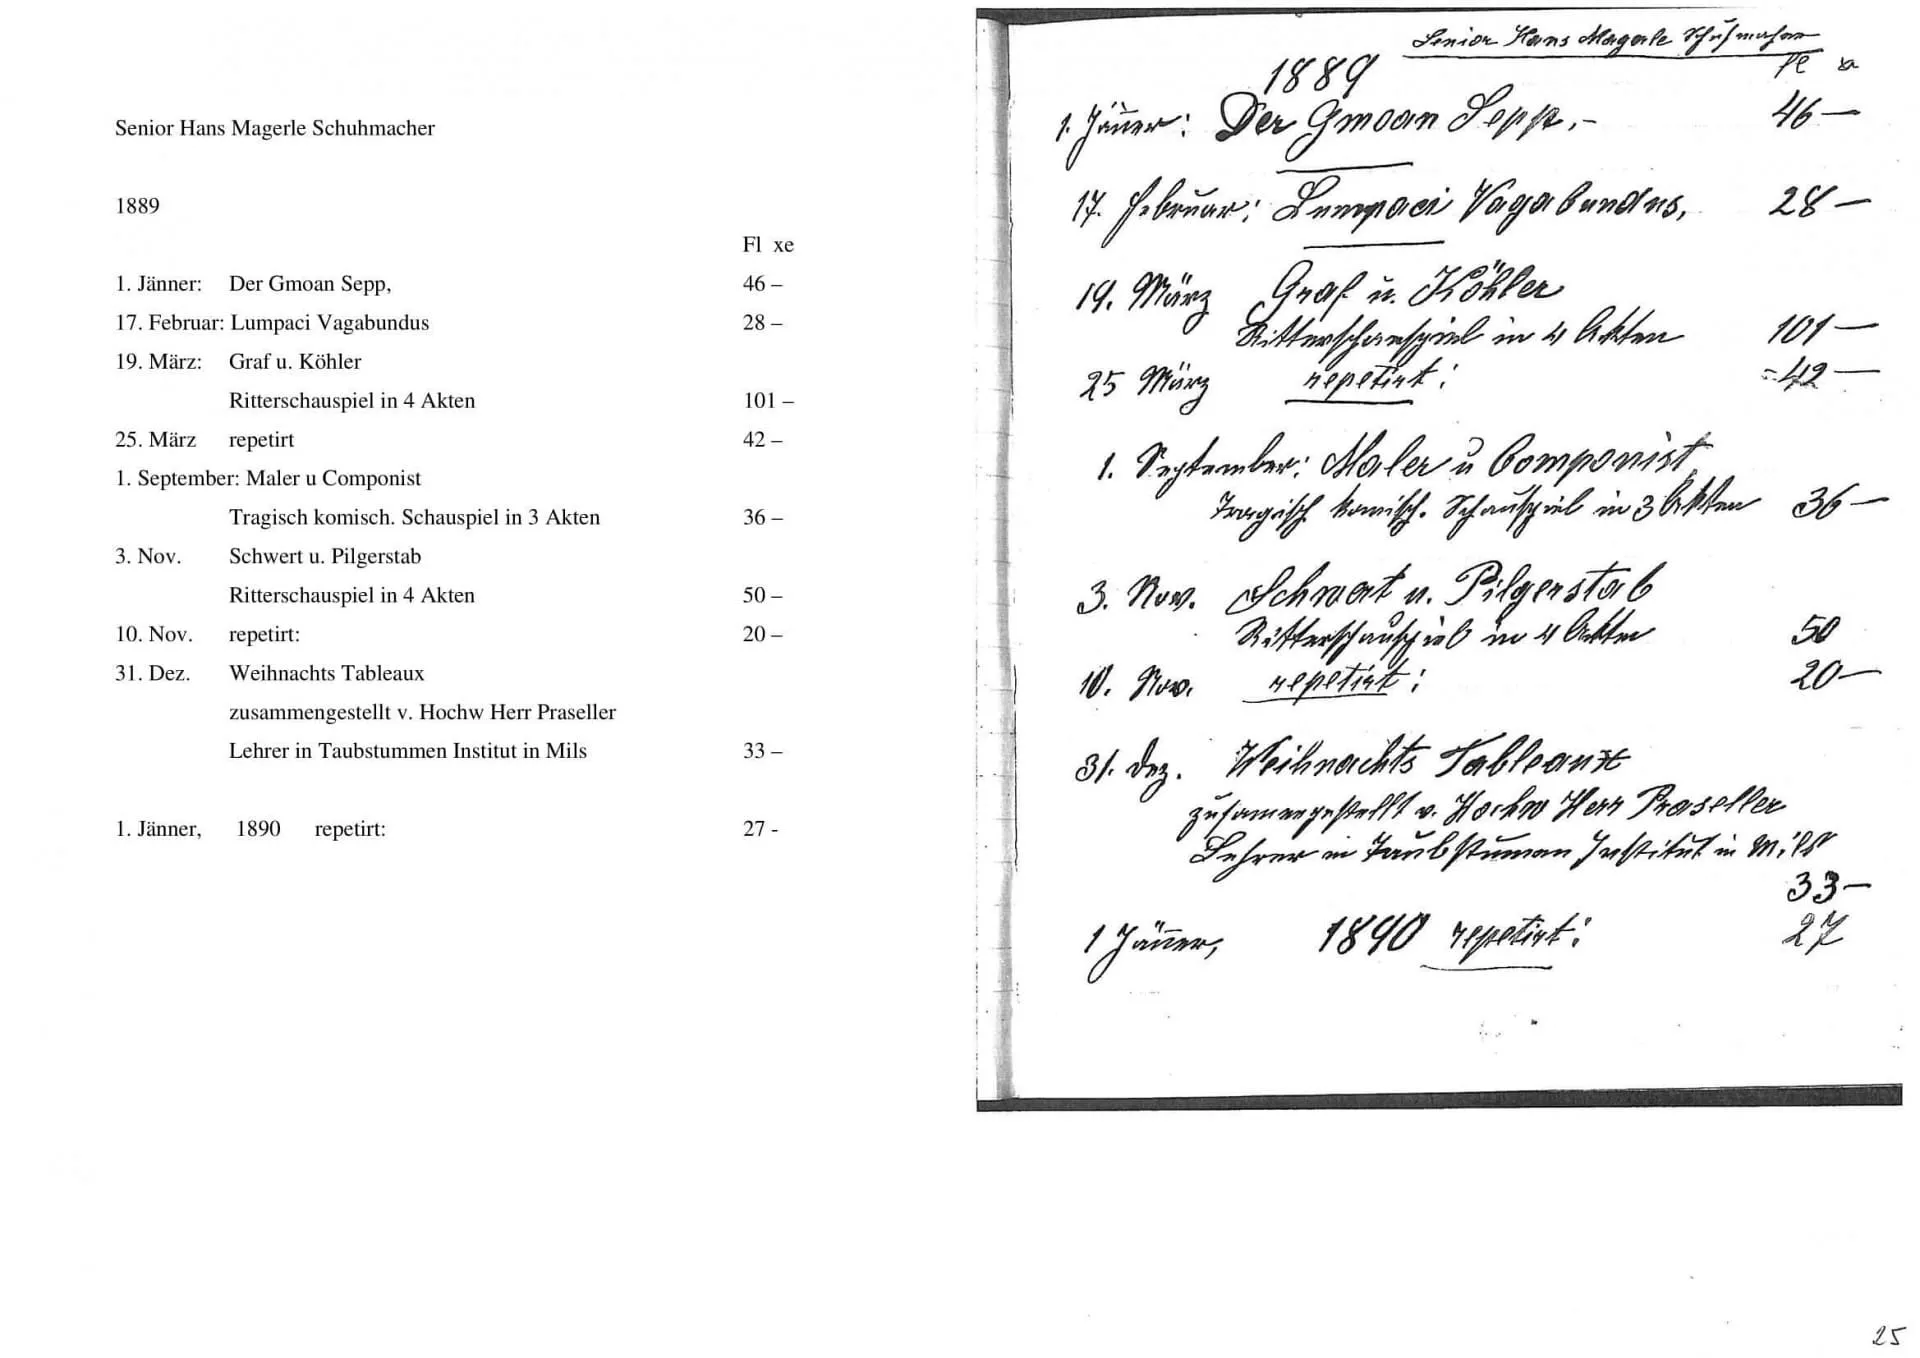 Senior Hans Magerle Schuhmacher
1889
Fl xe
1. Jänner: Der Gmoan Sepp, 46 –
17. Februar: Lumpaci Vagabundus 28 –
19. März: Graf u. Köhler
Ritterschauspiel in 4 Akten 101 –
25. März repetirt 42 –
1. September: Maler u Componist
Tragisch komisch. Schauspiel in 3 Akten 36 –
3. Nov. Schwert u. Pilgerstab
Ritterschauspiel in 4 Akten 50 –
10. Nov. repetirt: 20 –
31. Dez. Weihnachts Tableaux
zusammengestellt v. Hochw Herr Praseller
Lehrer in Taubstummen Institut in Mils 33 –
1. Jänner, 1890 repetirt: 27 -
Senior Hans Magerle Schuhmacher
fl x
1889
1. Jäner: Der Gmoan Sepp.- 46 –
17. Februar: Lumpaci Vagabundus, 28 –
19. März Graf u. Köhler
Ritterschauspiel in 4 Akten 101 –
25 März repetirt: 42 –
1. September: Maler u Componist
Tragisch komisch. Schauspiel in 3 Akten 36 –
3. Nov. Schwert u. Pilgerstab
Ritterschauspiel in 4 Akten 50
10. Nov. repetirt: 20 –
31. Dez. Weihnachts Tableaux
zusamengestellt v. Hochw Herr Praseller
Lehrer in Taubstumen Institut in Mils
33 –
1 Jäner, 1890 repetirt: 27
25